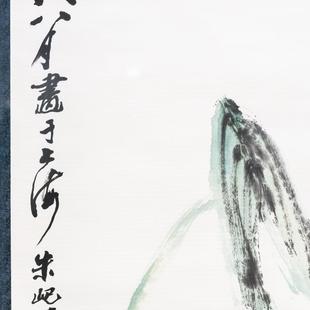 八月畫于上海朱屺